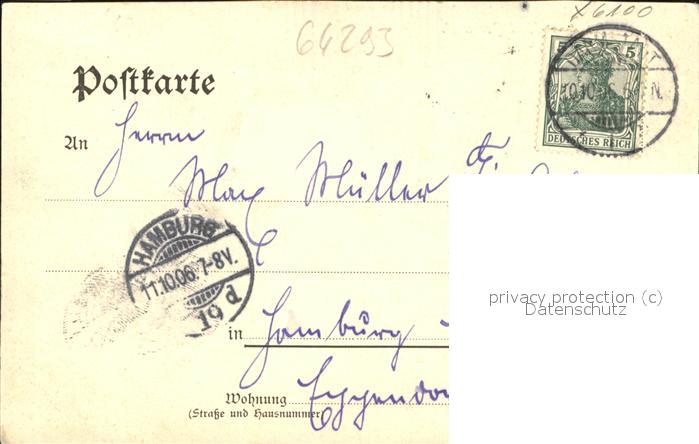 64293
x6100
Postkarte
5 5
DEUTSCHES REICH
10.10. 6 N.
An Herrn
Max Müller
HAMBURG
11.10.06. 7-8V.
19 P
privacy protection (c)
Datenschutz
in Hamburg
Wohnung
(Straße und Hausnummer)
Eppendor